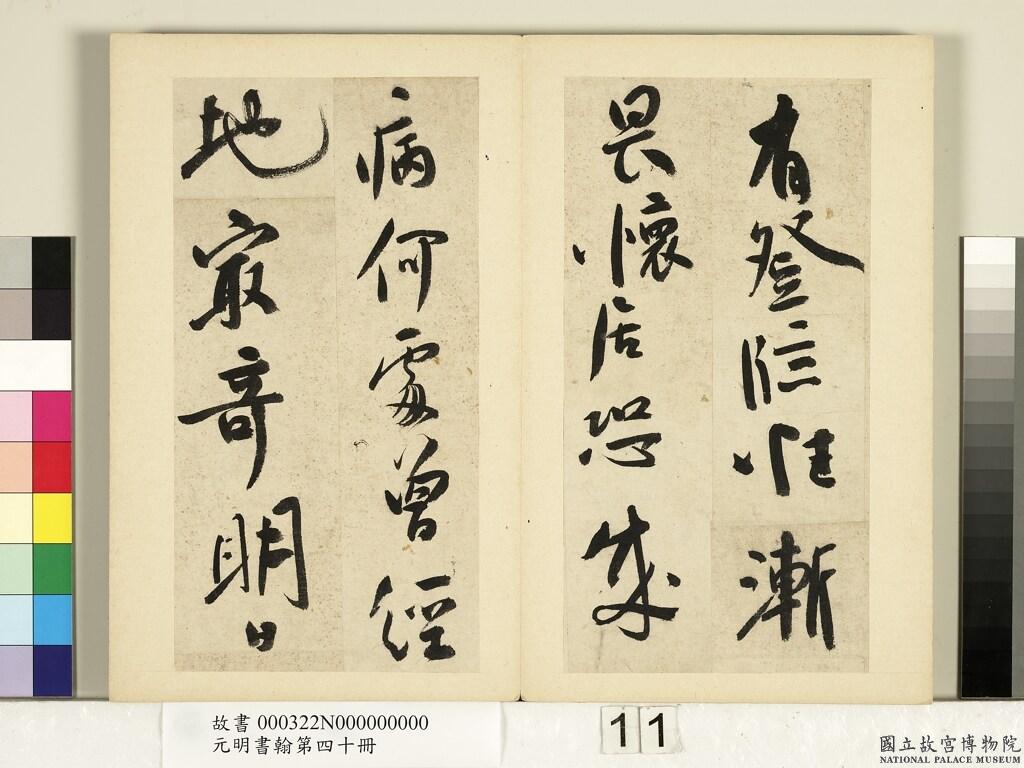 有登臨性漸
畏懷居恐成
病何處曾經
地最奇明日
故書 000322N000000000
元明書翰第四十冊
11
國立故宮博物院
NATIONAL PALACE MUSEUM